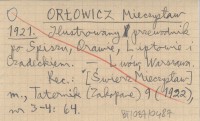 ORŁOWICZ Mieczysław
1921. Ilustrowany przewodnik
po Spiszu, Orawie, Liptowie i
Czadeckiem. — Lwów Warszawa.
Rec.: [Świerz Mieczysław]
m., Taternik (Zakopane) 9 (1922),
nr 3-4: 64.